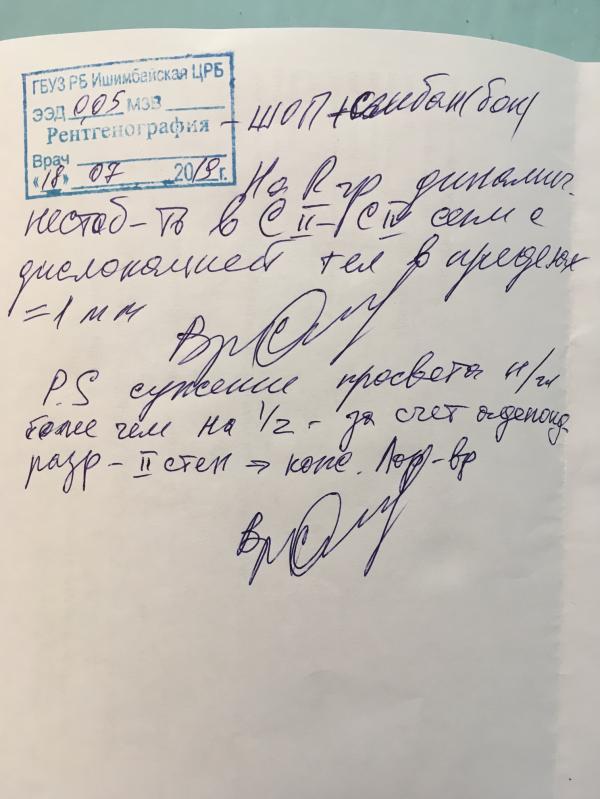 ГБУЗ РБ Ишимбайская ЦРБ
ЭЭД 0,05 МЗВ
Рентгенография
Врач
"18" 07 2019 г.
- ШОП + (бок)
На R-гр динамич.
нестаб-ть в CII-CIV сегм с
дислокацией тел в пределах
=1 мм
Вр
P.S сужение просвета н/гл
более чем на 1/2 - за счет аденоид
разр - II степ => конс. Лор-вр
Вр